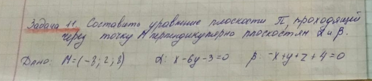 Задача 11. Составить уравнение плоскости П, проходящей
через точку M перпендикулярно плоскостям α и β.
Дано: M=(-3; 2; 8) α: x-6y-3=0 β: -x+y+z+4=0